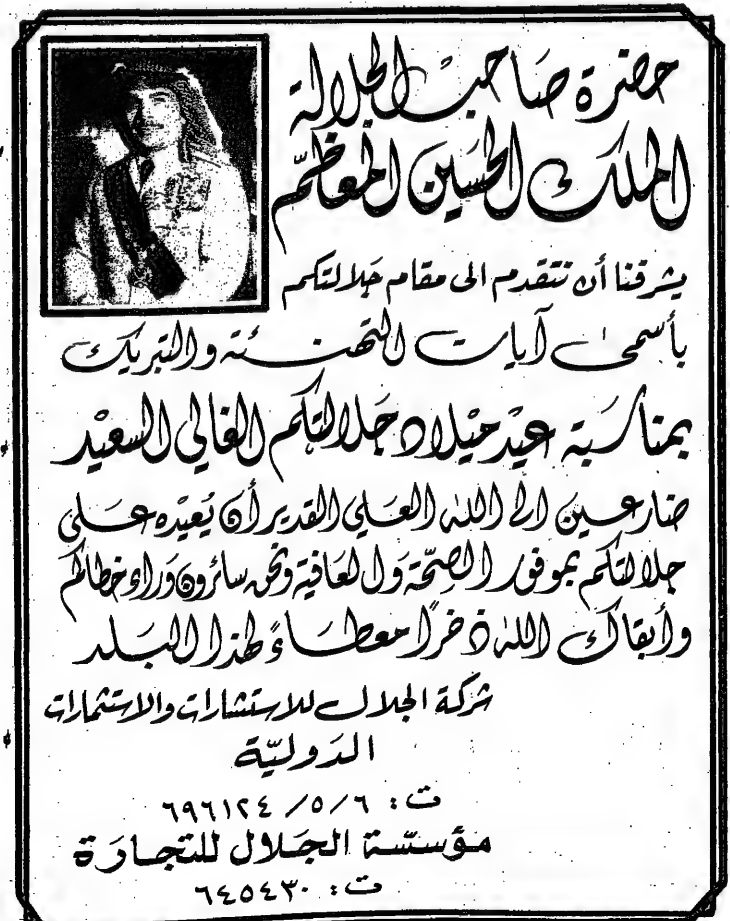 حضرة صاحب الجلالة
الملك الحسين المعظم
يشرفنا أن نتقدم الى مقام جلالتكم
بأسمى آيات التهنئة والتبريك
بمناسبة عيد ميلاد جلالتكم الغالي السعيد
ضارعين الى الله العلي القدير أن يعيده على
جلالتكم بموفور الصحة والعافية ونحن سائرون وراء خطاكم
وأبقاك الله ذخراً معطاءً لهذا البلد
شركة الجلال للاستشارات والاستثمارات
الدولية
ت: ٦٩٦١٢٤ /٥/٦
مؤسسة الجلال للتجارة
ت: ٦٤٥٤٣٠